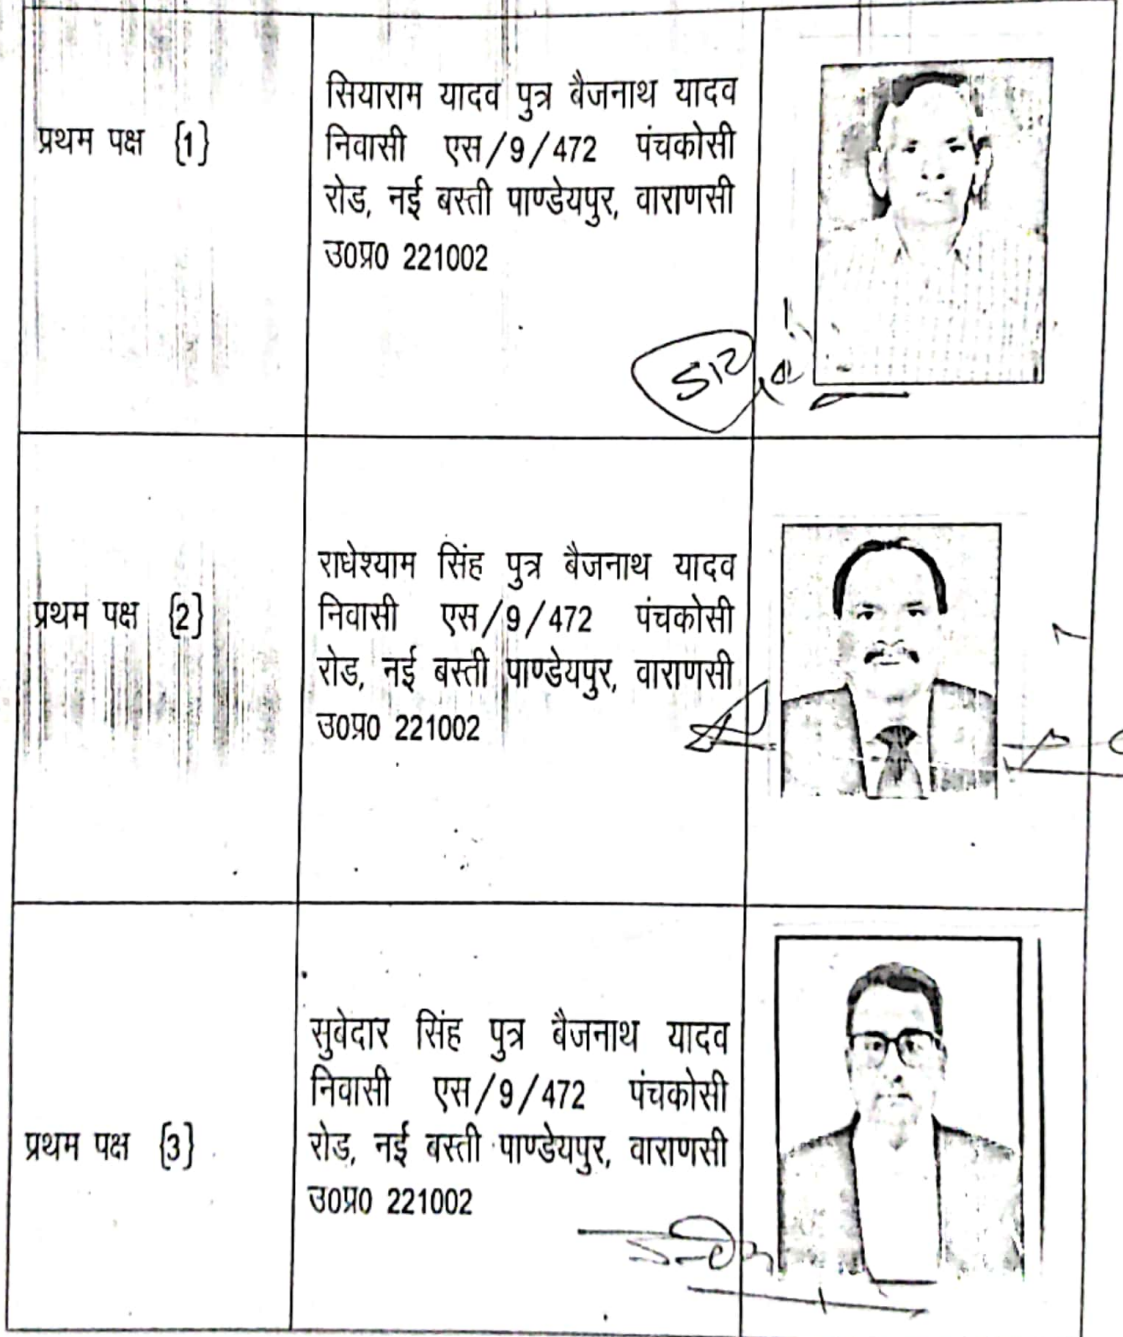 प्रथम पक्ष {1}
सियाराम यादव पुत्र बैजनाथ यादव
निवासी एस/9/472 पंचकोसी
रोड, नई बस्ती पाण्डेयपुर, वाराणसी
उ0प्र0 221002
प्रथम पक्ष {2}
राधेश्याम सिंह पुत्र बैजनाथ यादव
निवासी एस/9/472 पंचकोसी
रोड, नई बस्ती पाण्डेयपुर, वाराणसी
उ0प्र0 221002
प्रथम पक्ष {3}
सुबेदार सिंह पुत्र बैजनाथ यादव
निवासी एस/9/472 पंचकोसी
रोड, नई बस्ती पाण्डेयपुर, वाराणसी
उ0प्र0 221002